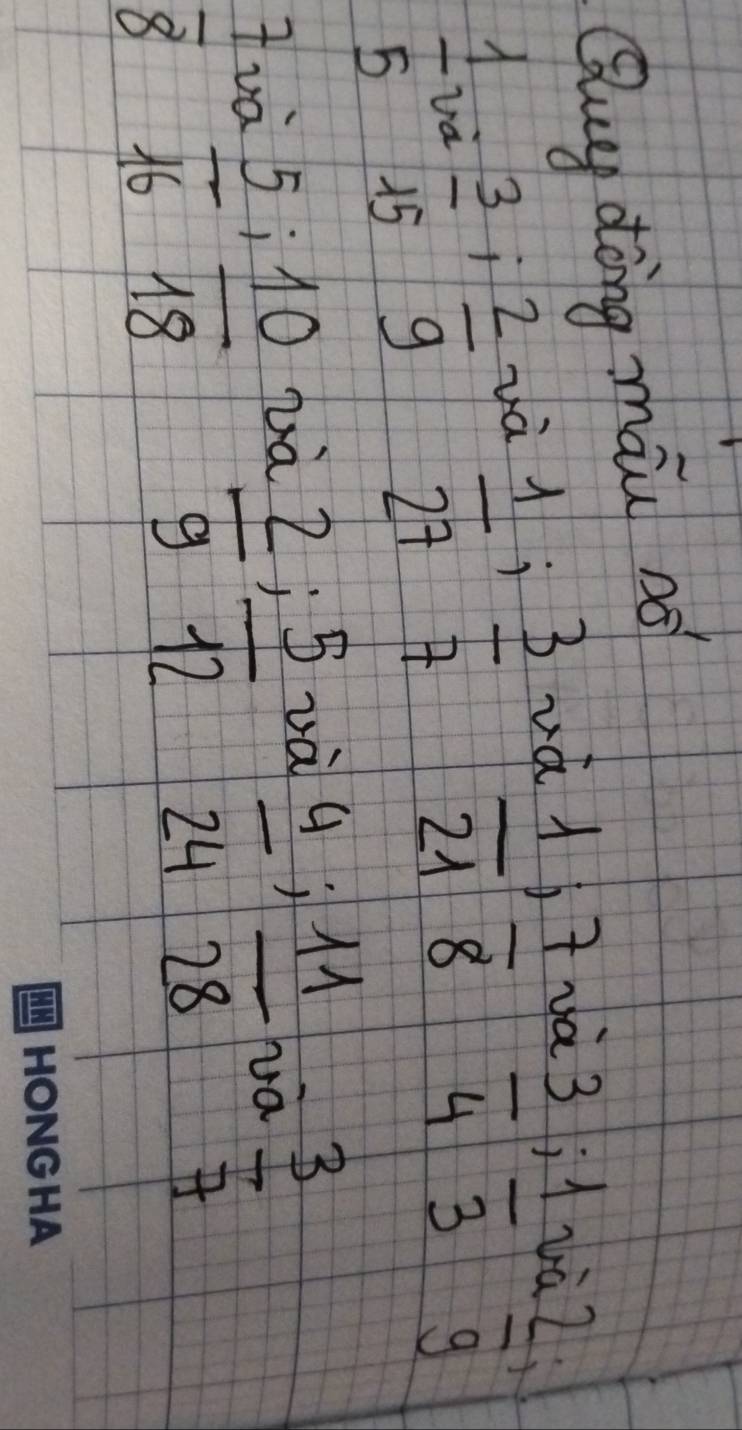 Quy đồng mẫu số
1/5 và 3/15 ; 2/9 và 1/27 ; 3/7 và 1/21 ; 7/8 và 3/4 ; 1/3 và 2/9 ;
7/8 và 5/16 ; 10/18 và 2/9 ; 5/12 và 4/24 ; 11/28 và 3/7
HONG HA